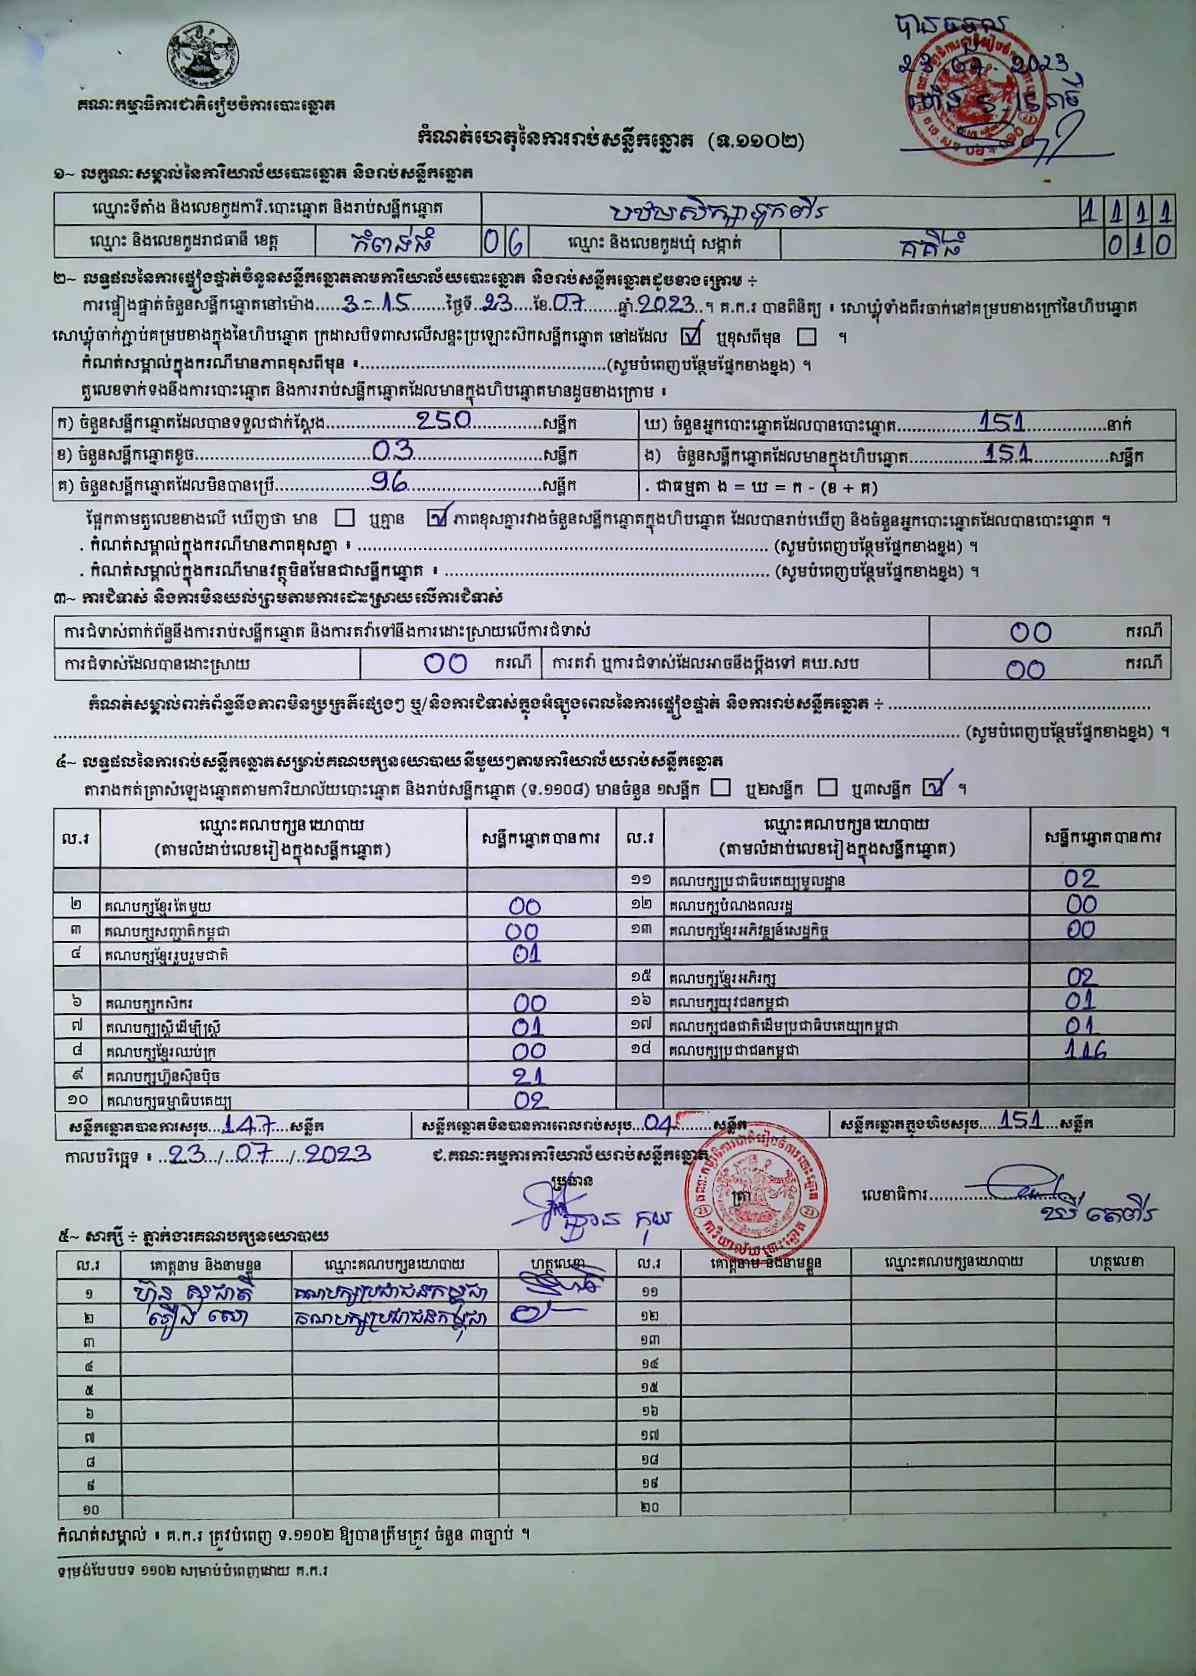 បានទទួល
23.07.2023
គណៈកម្មាធិការជាតិរៀបចំការបោះឆ្នោត
កំណត់ហេតុនៃការរាប់សន្លឹកឆ្នោត (ទ.១១០២)
១~ លក្ខណៈសម្គាល់នៃការិយាល័យបោះឆ្នោត និងរាប់សន្លឹកឆ្នោត
ឈ្មោះទីតាំង និងលេខកូដការិ.បោះឆ្នោត និងរាប់សន្លឹកឆ្នោត បឋមសិក្សាទូកទីរ 1 1 1 1
ឈ្មោះ និងលេខកូដរាជធានី ខេត្ត កំពង់ធំ 0 6 ឈ្មោះ និងលេខកូដឃុំ សង្កាត់ គគីធំ 0 1 0
២~ លទ្ធផលនៃការផ្ទៀងផ្ទាត់ចំនួនសន្លឹកឆ្នោតតាមការិយាល័យបោះឆ្នោត និងរាប់សន្លឹកឆ្នោតដូចខាងក្រោម ÷
ការផ្ទៀងផ្ទាត់ចំនួនសន្លឹកឆ្នោតនៅម៉ោង......3-15........ថ្ងៃទី..23....ខែ.07......ឆ្នាំ.2023..។ គ.ក.រ បានពិនិត្យ ៖ សោឃ្លុំទាំងពីរចាក់នៅគម្របខាងក្រៅនៃហិបឆ្នោត
សោឃ្លុំចាក់ភ្ជាប់គម្របខាងក្នុងនៃហិបឆ្នោត ក្រដាសបិទពាសលើសន្ទះប្រឡោះស៊កសន្លឹកឆ្នោត នៅដដែល ☑ ឬខុសពីមុន ☐ ។
កំណត់សម្គាល់ក្នុងករណីមានភាពខុសពីមុន ៖..................................................(សូមបំពេញបន្ថែមផ្នែកខាងខ្នង) ។
តួលេខទាក់ទងនឹងការបោះឆ្នោត និងការរាប់សន្លឹកឆ្នោតដែលមានក្នុងហិបឆ្នោតមានដូចខាងក្រោម ៖
ក) ចំនួនសន្លឹកឆ្នោតដែលបានទទួលជាក់ស្ដែង..................250..............សន្លឹក ឃ) ចំនួនអ្នកបោះឆ្នោតដែលបានបោះឆ្នោត..................151..................នាក់
ខ) ចំនួនសន្លឹកឆ្នោតខូច..................03..................សន្លឹក ង) ចំនួនសន្លឹកឆ្នោតដែលមានក្នុងហិបឆ្នោត..................151..................សន្លឹក
គ) ចំនួនសន្លឹកឆ្នោតដែលមិនបានប្រើ..................96..................សន្លឹក . ជាធម្មតា ង = ឃ = ក - (ខ + គ)
ផ្អែកតាមតួលេខខាងលើ ឃើញថា មាន ☐ ឬគ្មាន ☑ ភាពខុសគ្នារវាងចំនួនសន្លឹកឆ្នោតក្នុងហិបឆ្នោត ដែលបានរាប់ឃើញ និងចំនួនអ្នកបោះឆ្នោតដែលបានបោះឆ្នោត ។
. កំណត់សម្គាល់ក្នុងករណីមានភាពខុសគ្នា ៖ .................................................. (សូមបំពេញបន្ថែមផ្នែកខាងខ្នង) ។
. កំណត់សម្គាល់ក្នុងករណីមានវត្ថុមិនមែនជាសន្លឹកឆ្នោត ៖ .................................................. (សូមបំពេញបន្ថែមផ្នែកខាងខ្នង) ។
៣~ ការជំទាស់ និងការមិនយល់ព្រមតាមការដោះស្រាយលើការជំទាស់
ការជំទាស់ពាក់ព័ន្ធនឹងការរាប់សន្លឹកឆ្នោត និងការតវ៉ាទៅនឹងការដោះស្រាយលើការជំទាស់ 00 ករណី
ការជំទាស់ដែលបានដោះស្រាយ 00 ករណី ការតវ៉ា ឬការជំទាស់ដែលអាចនឹងប្ដឹងទៅ គឃ.សប 00 ករណី
កំណត់សម្គាល់ពាក់ព័ន្ធនឹងភាពមិនប្រក្រតីផ្សេងៗ ឬ/និងការជំទាស់ក្នុងអំឡុងពេលនៃការផ្ទៀងផ្ទាត់ និងការរាប់សន្លឹកឆ្នោត ÷ ..................................................
.................................................. (សូមបំពេញបន្ថែមផ្នែកខាងខ្នង) ។
៤~ លទ្ធផលនៃការរាប់សន្លឹកឆ្នោតសម្រាប់គណបក្សនយោបាយនីមួយៗតាមការិយាល័យរាប់សន្លឹកឆ្នោត
តារាងកត់ត្រាសំឡេងឆ្នោតតាមការិយាល័យបោះឆ្នោត និងរាប់សន្លឹកឆ្នោត (ទ.១១០៨) មានចំនួន ១សន្លឹក ☐ ឬ២សន្លឹក ☐ ឬ៣សន្លឹក ☑ ។
ល.រ ឈ្មោះគណបក្សនយោបាយ សន្លឹកឆ្នោតបានការ ល.រ ឈ្មោះគណបក្សនយោបាយ សន្លឹកឆ្នោតបានការ
(តាមលំដាប់លេខរៀងក្នុងសន្លឹកឆ្នោត) (តាមលំដាប់លេខរៀងក្នុងសន្លឹកឆ្នោត)
១១ គណបក្សប្រជាធិបតេយ្យមូលដ្ឋាន 02
២ គណបក្សខ្មែរតែមួយ 00 ១២ គណបក្សបំណងពលរដ្ឋ 00
៣ គណបក្សសញ្ជាតិកម្ពុជា 00 ១៣ គណបក្សខ្មែរអភិវឌ្ឍន៍សេដ្ឋកិច្ច 00
៤ គណបក្សខ្មែររួបរួមជាតិ 01
១៥ គណបក្សខ្មែរអភិរក្ស 02
៦ គណបក្សកសិករ 00 ១៦ គណបក្សយុវជនកម្ពុជា 01
៧ គណបក្សស្ត្រីដើម្បីស្ត្រី 01 ១៧ គណបក្សជនជាតិដើមប្រជាធិបតេយ្យកម្ពុជា 01
៨ គណបក្សខ្មែរឈប់ក្រ 00 ១៨ គណបក្សប្រជាជនកម្ពុជា 116
៩ គណបក្សហ៊្វុនស៊ិនប៉ិច 21
១០ គណបក្សធម្មាធិបតេយ្យ 02
សន្លឹកឆ្នោតបានការសរុប...147....សន្លឹក សន្លឹកឆ្នោតមិនបានការពេលរាប់សរុប...04........សន្លឹក សន្លឹកឆ្នោតក្នុងហិបសរុប.....151....សន្លឹក
កាលបរិច្ឆេទ ៖ ..23...../..07...../..2023 ជ.គណៈកម្មការការិយាល័យរាប់សន្លឹកឆ្នោត
ប្រធាន
ត្រា
លេខាធិការ..................
៥~ សាក្សី ÷ ភ្នាក់ងារគណបក្សនយោបាយ
ល.រ គោត្តនាម និងនាមខ្លួន ឈ្មោះគណបក្សនយោបាយ ហត្ថលេខា ល.រ គោត្តនាម និងនាមខ្លួន ឈ្មោះគណបក្សនយោបាយ ហត្ថលេខា
១ ហ៊ុន សុជាតិ គណបក្សប្រជាជនកម្ពុជា ១១
២ គណបក្សប្រជាជនកម្ពុជា ១២
៣ ១៣
៤ ១៤
៥ ១៥
៦ ១៦
៧ ១៧
៨ ១៨
៩ ១៩
១០ ២០
កំណត់សម្គាល់ ៖ គ.ក.រ ត្រូវបំពេញ ទ.១១០២ ឱ្យបានត្រឹមត្រូវ ចំនួន ៣ច្បាប់ ។
ទម្រង់បែបបទ ១១០២ សម្រាប់បំពេញដោយ គ.ក.រ